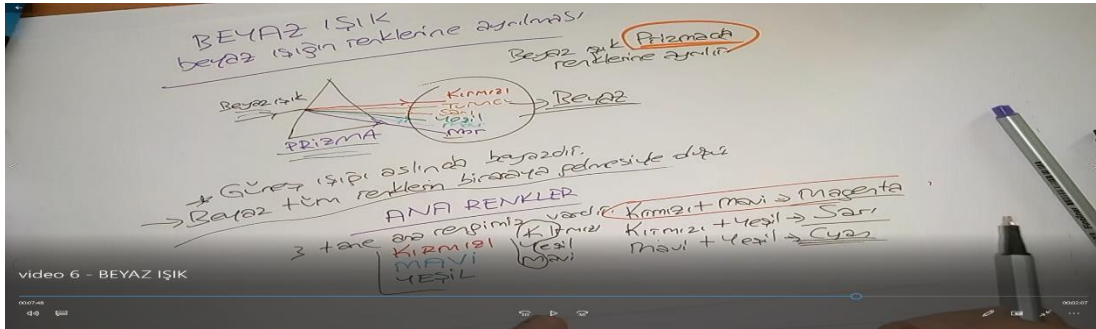 BEYAZ IŞIK
beyaz ışığın renklerine ayrılması
Beyaz ışık Prizmada
renklerine ayrılır
Beyaz ışık
PRİZMA
Kırmızı
Turuncu
Sarı
Yeşil
Mavi
Mor
→ Beyaz
* Güneş ışığı aslında beyazdır.
→ Beyaz tüm renklerin biraraya gelmesiyle oluşur
ANA RENKLER
3 tane ana rengimiz vardır.
KIRMIZI
MAVİ
YEŞİL
Kırmızı
Yeşil
Mavi
Kırmızı + mavi → Magenta
Kırmızı + Yeşil → Sarı
Mavi + Yeşil → Cyan
video 6 - BEYAZ IŞIK
00:07:48
00:02:07